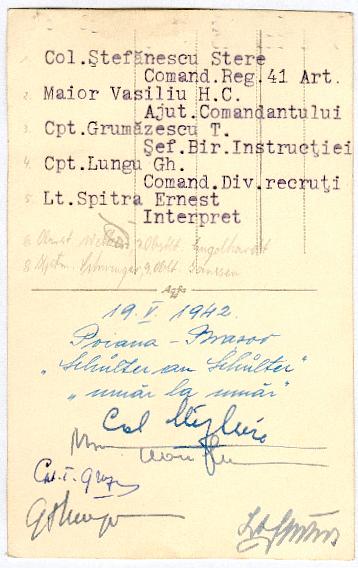 Col.Ștefănescu Stere
Comand.Reg.41 Art.
2. Maior Vasiliu H.C.
Ajut.Comandantului
3. Cpt.Grumăzescu T.
Șef.Bir.Instrucției
4. Cpt.Lungu Gh.
Comand.Div.recruți
5. Lt.Spitra Ernest
Interpret
6. Obrist 7. Obrstlt. Engelhardt
8. Hptm. 9. Oblt.
Agfa
19.V.1942.
Poiana - Brasov
„Schulter an Schulter"
„umăr la umăr"
Col